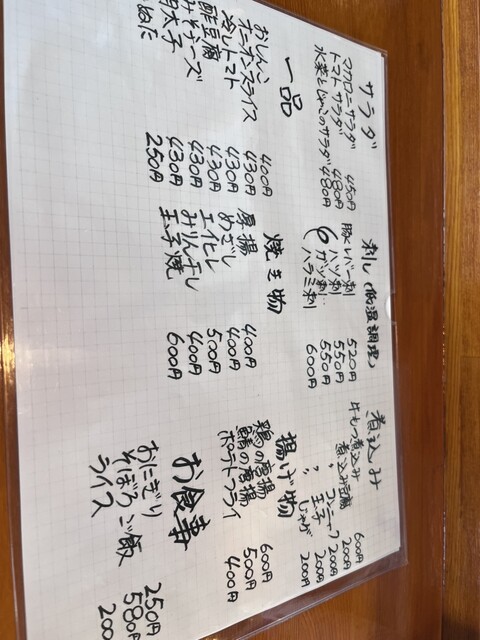 サラダ
マカロニサラダ 450円
トマトサラダ 480円
水菜とじゃこのサラダ 480円
刺し(低温調理)
豚レバー刺 520円
〃 ハツ刺 550円
〃 ガツ刺 550円
ハラミ刺 600円
煮込み
牛もつ煮込み 600円
煮込み豆腐 200円
〃 コンニャク 200円
〃 玉子 200円
じゃが 200円
一品
おしんこ 400円
オニオンスライス 430円
冷しトマト 430円
酢豆腐 430円
みそチーズ 430円
明太子 430円
250円
焼き物
厚揚 400円
めざし 400円
エイヒレ 500円
みりん干し 400円
玉子焼 600円
揚げ物
鶏の唐揚 600円
鯖の唐揚 500円
ポテトフライ 400円
お食事
おにぎり 250円
そぼろご飯 580円
ライス 200